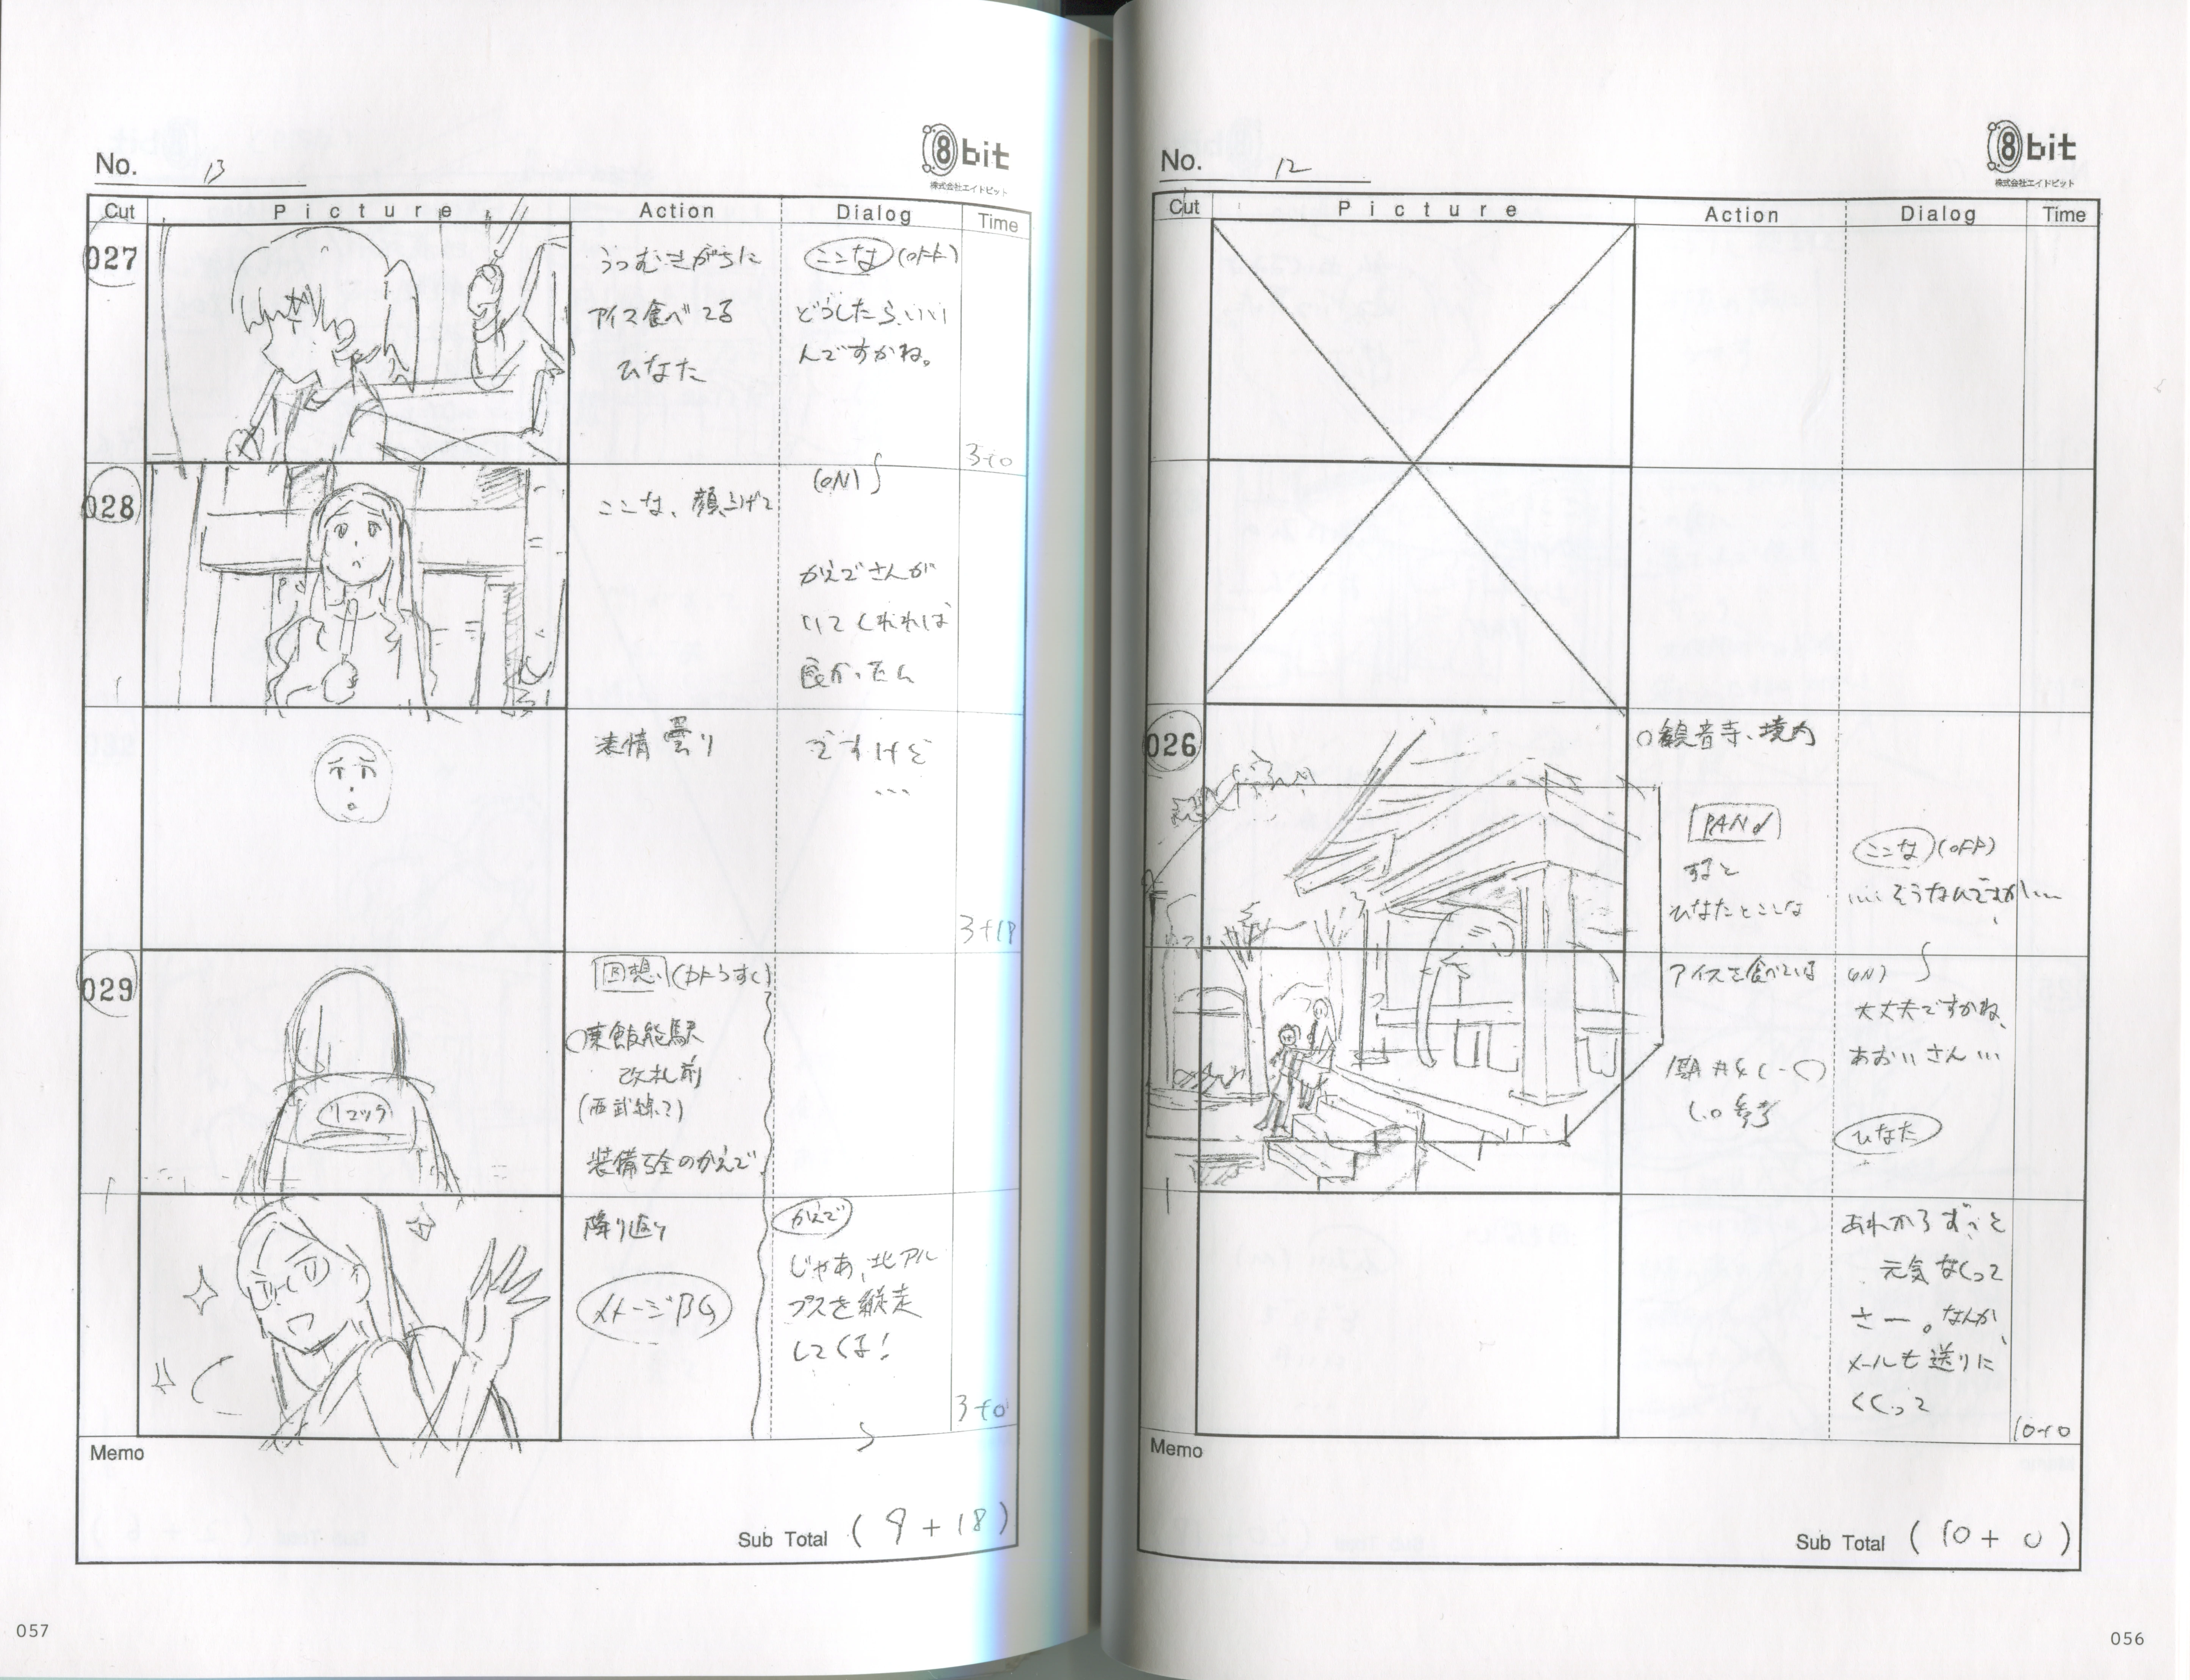 No. 12
8bit
株式会社エイトビット
Cut Picture Action Dialog Time
026
○観音寺、境内
PAN
すると
ひなたとここな
アイスを食べている
参考
ここな (OFF)
……そうなんですか……
(ON)
大丈夫ですかね、
あおいさん…
ひなた
あれからずっと
元気なくって
さー。なんか、
メールも送りに
くくって
10+0
Memo
Sub Total (10+0)
056
No. 13
8bit
株式会社エイトビット
Cut Picture Action Dialog Time
027
うつむきがちに
アイス食べてる
ひなた
ここな (OFF)
どうしたらいい
んですかね。
3+0
028
ここな、顔上げて
(ON)
かえでさんが
いてくれれば
良かったん
表情曇り
ですけど
…
3+18
029
リュック
回想
○東飯能駅
改札前
(西武線?)
装備万全のかえで
振り返り
イメージBG
かえで
じゃあ、北アル
プスを縦走
してくる!
3+0
Memo
Sub Total (9+18)
057